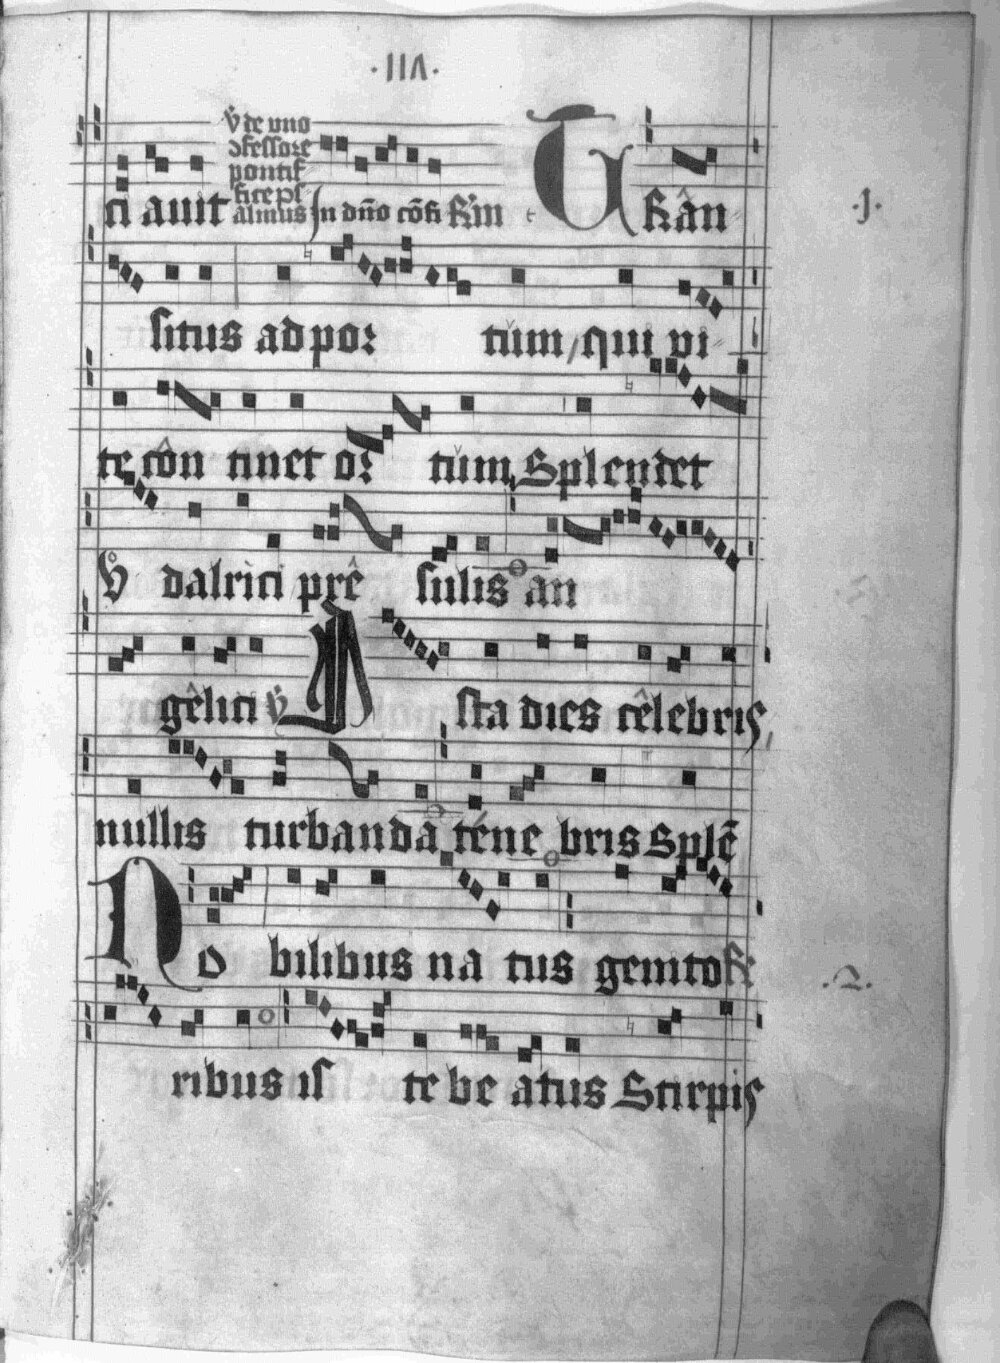 ·117·
ṽ de uno
ↄfessore
pontif
fice ps
ci auit almus In dño cõfi Rm̃ TRân ·1·
situs ad por tum, qui vi
te côn tinet or tum, Splendet
Vͦ dalrici prê sulis an
gêlici ỹ Ista dies cêlebris,
nullis turbanda téne bris Splẽ
No bilibus na tus genito R̃ ·2·
ribus ist te be atus Stirpis